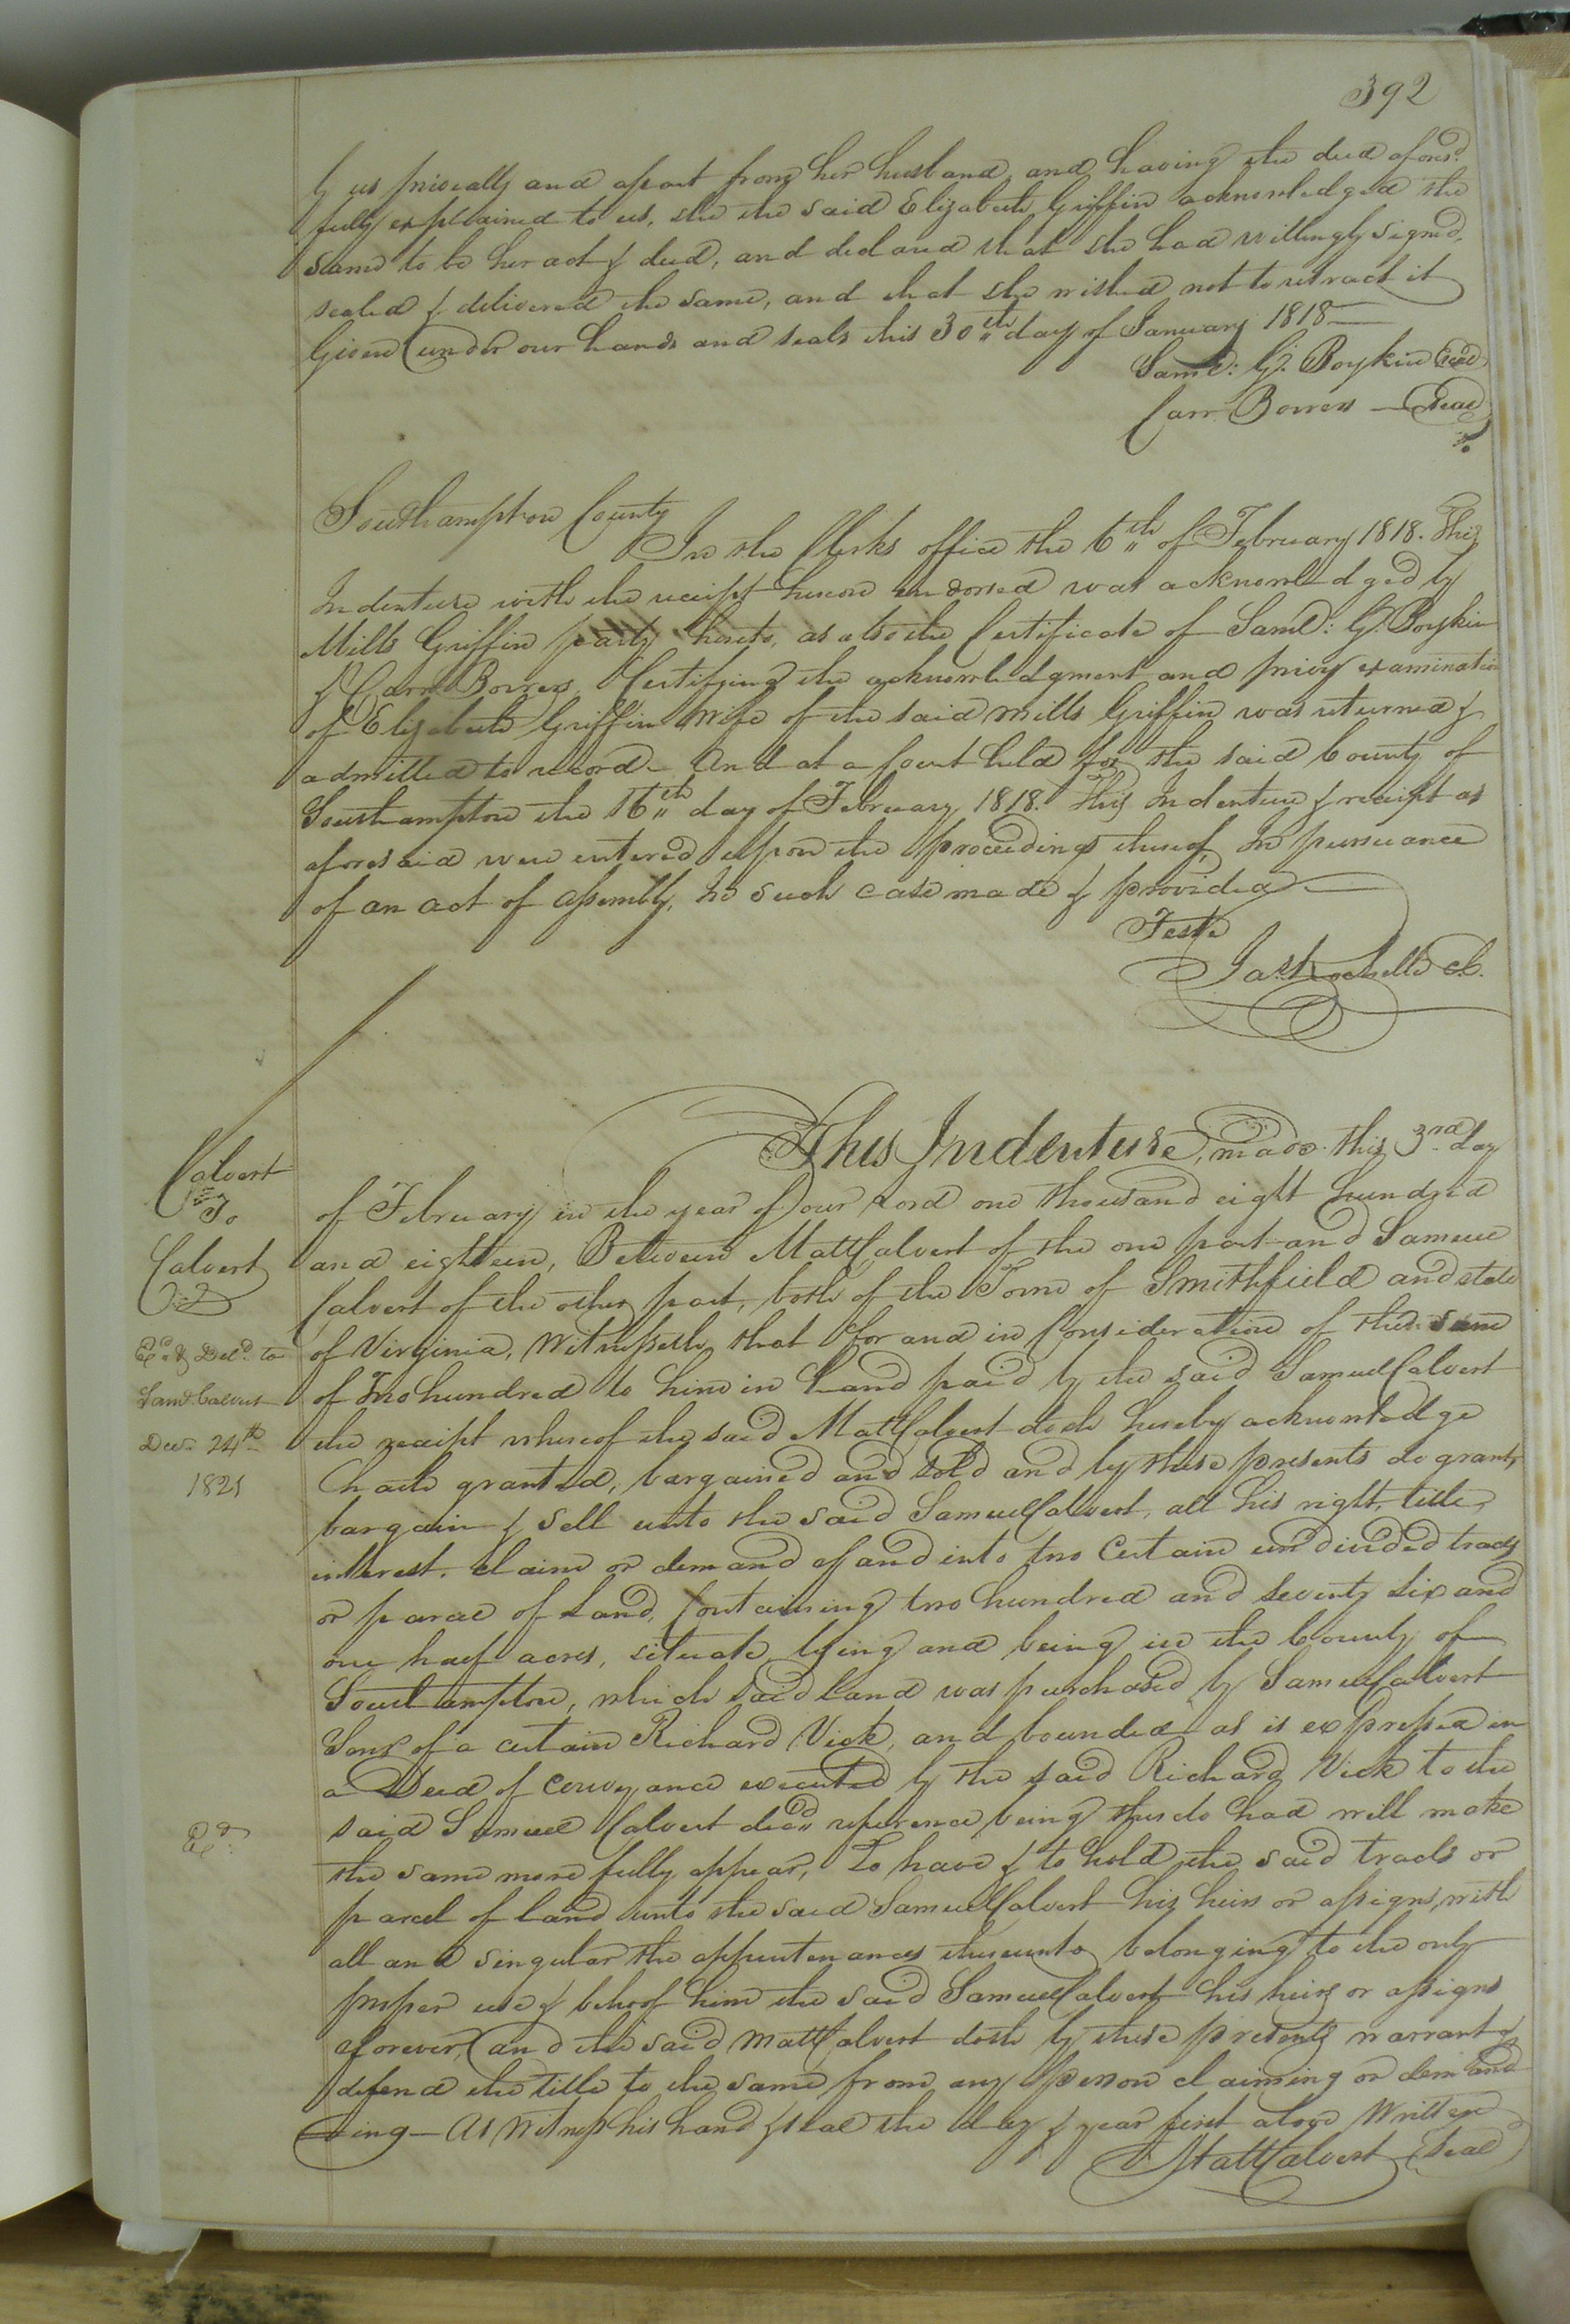 392
by us privately and apart from her husband, and having the deed afores.d
fully explained to us, she the said Elizabeth Griffin acknowledged the
same to be her act & deed, and declared that she had willingly signed,
sealed & delivered the same, and that she wished not to retract it
Given under our hands and seals this 30th day of January 1818
Saml: G. Boykin Seal
Carr Bowers Seal
Southampton County
In the Clerks office the 6th of February 1818. This
Indenture with the receipt hereon endorsed was acknowledged by
Mills Griffin party hereto, as also the Certificate of Saml: G. Boykin
& Carr Bowers, Certifying the acknowledgment and privy examination
of Elizabeth Griffin Wife of the said Mills Griffin was returned &
admitted to record. And at a Court held for the said County of
Southampton the 16th day of February 1818. This Indenture & receipt as
aforesaid were entered upon the proceedings thereof, In pursuance
of an act of assembly, in such case made & provided
Teste
Jas. Rochelle C.C.
This Indenture, made this 3nd day
Calvert
To
Calvert
of February in the year of our Lord one thousand eight hundred
and eighteen, Between Matt Calvert of the one part and Samuel
Calvert of the other part, both of the Town of Smithfield and state
Ex.d & Del.d to
Saml. Calvert
Decr. 24th
1821
of Virginia, Witnesseth, that for and in Consideration of the sum
of Two hundred to him in hand paid by the said Samuel Calvert
the receipt whereof the said Matt Calvert doth hereby acknowledge
hath granted, bargained and sold and by these presents do grant,
bargain & sell unto the said Samuel Calvert, all his right, title,
interest, claim or demand of and into two Certain undivided tracts
or parcel of Land, Containing two hundred and seventy six and
one half acres, situate, lying and being in the County of
Southampton, which said land was purchased by Samuel Calvert
Senr of a certain Richard Vick, and bounded as is expressed in
a Deed of conveyance executed by the said Richard Vick to the
said Samuel Calvert decd reference being thereto had will make
Ex.d
the same more fully appear, To have & to hold the said tracts or
parcel of land unto the said Samuel Calvert his heirs or assigns, with
all and singular the appurtenances thereunto belonging to the only
proper use & behoof him the said Samuel Calvert his heirs or assigns
forever, and the said Matt Calvert doth by these presents warrant &
defend the title to the same from any person claiming or demand
ding - As Witness his hand & seal the day & year first above Written
Matt Calvert Seal